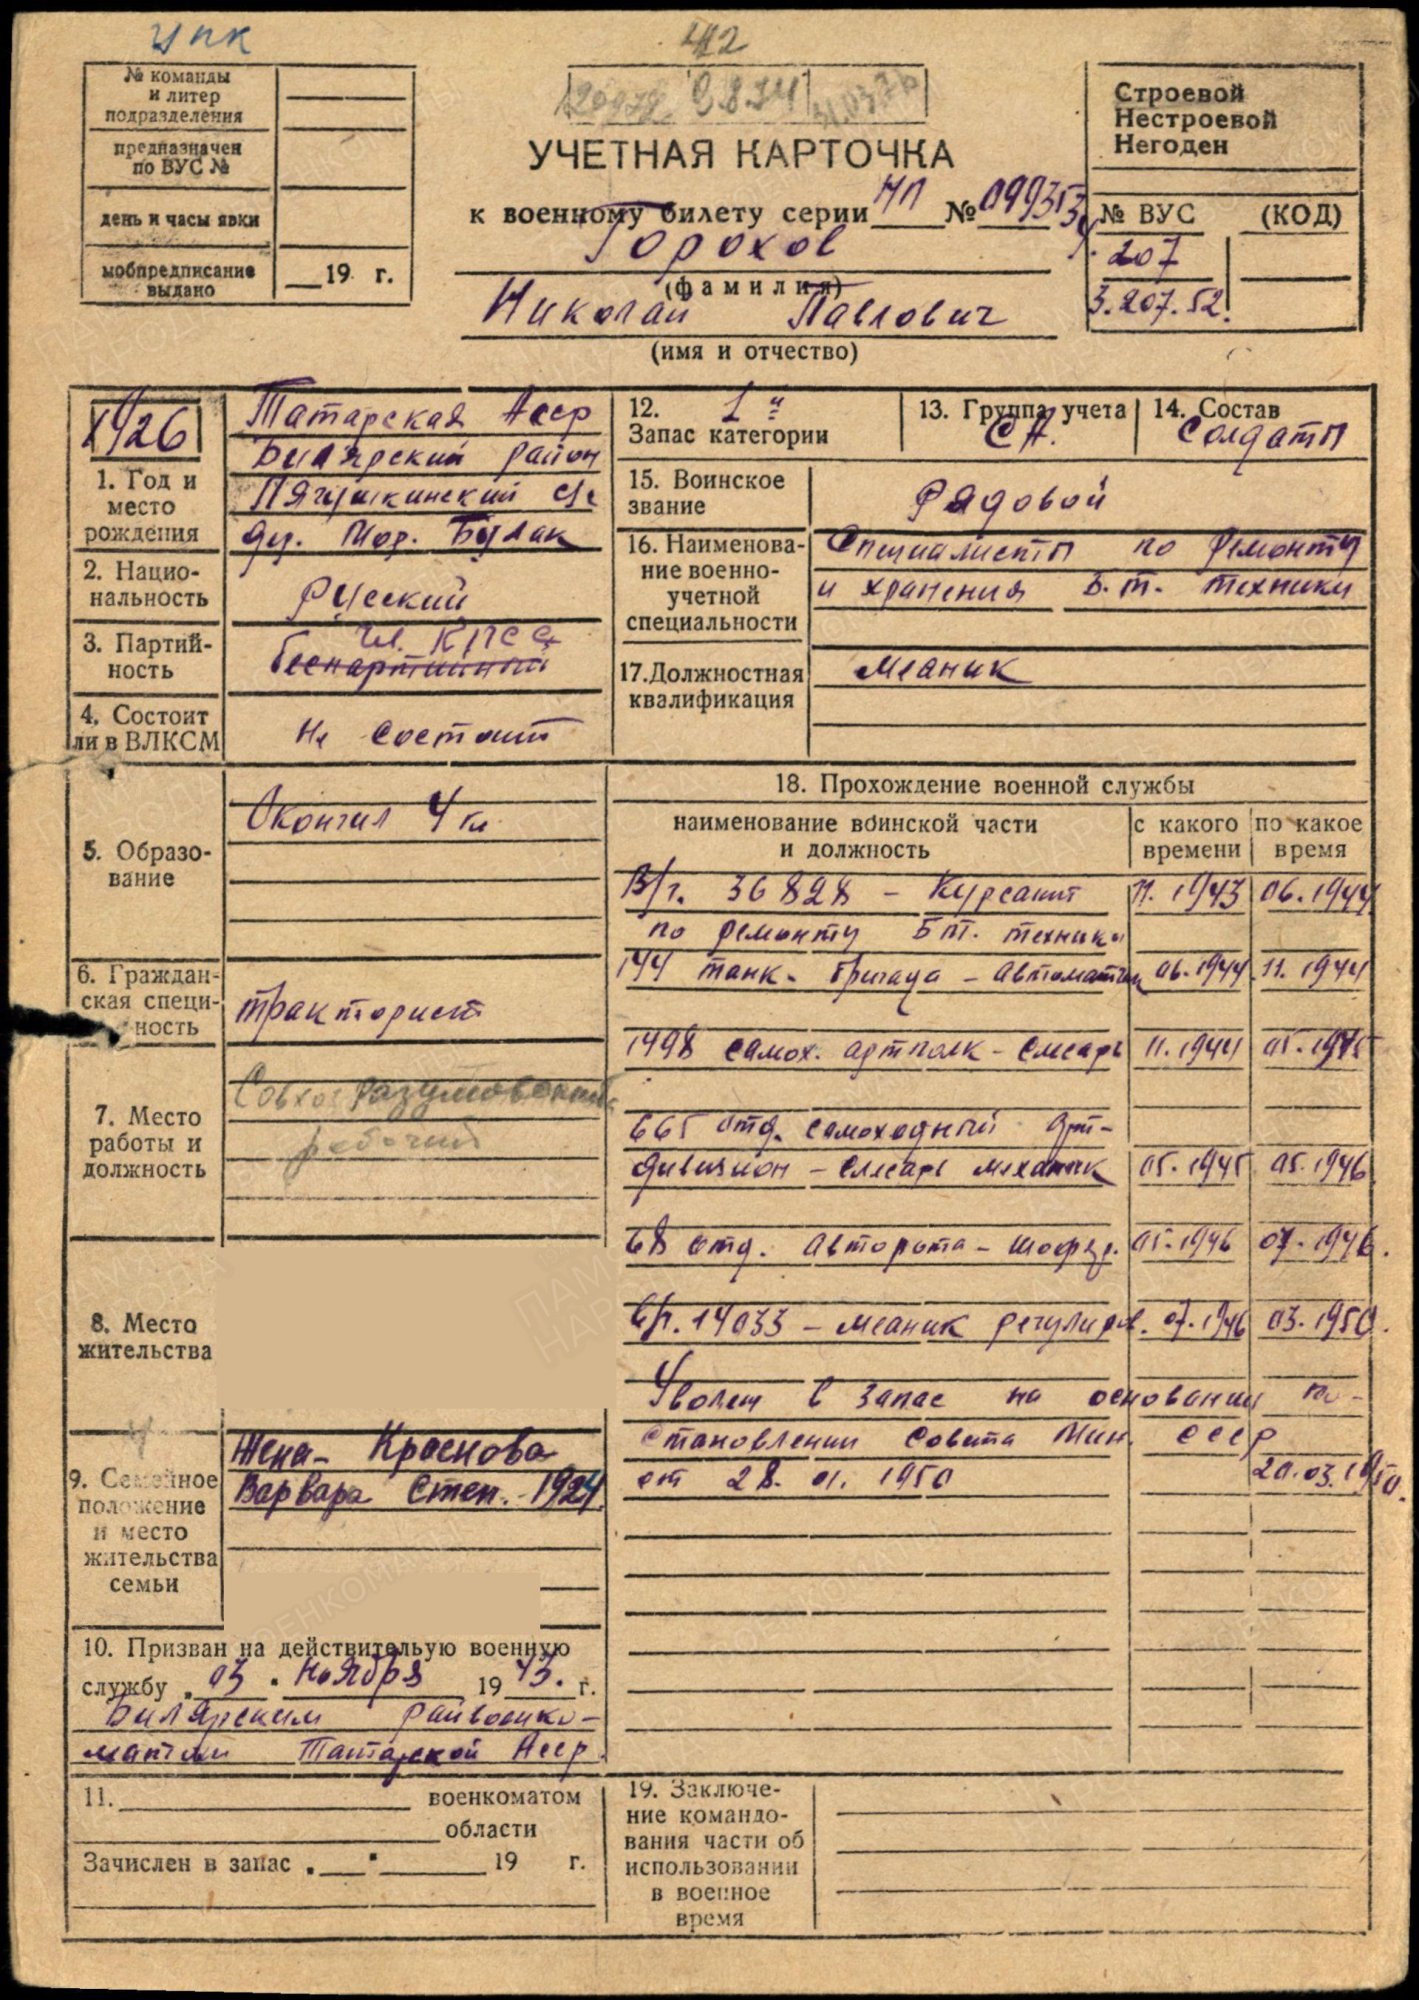 УПК
442
№ команды
и литер
подразделения
предназначен
по ВУС №
день и часы явки
мобпредписание
выдано
19 г.
УЧЕТНАЯ КАРТОЧКА
к военному билету серии НП №
Горохов
(фамилия)
Николай Павлович
(имя и отчество)
Строевой
Нестроевой
Негоден
№ ВУС (КОД)
207
3.207.52.
1926
1. Год и
место
рождения
Татарская Асср
Билярский район
дер. Мор. Булак
2. Нацио-
нальность
Русский
3. Партий-
ность
Чл. КПСС
беспартийный
4. Состоит
ли в ВЛКСМ
Не состоит
5. Образо-
вание
Окончил 4 кл
6. Граждан-
ская специ-
ность
тракторист
7. Место
работы и
должность
Совхоз Разумовский
рабочий
8. Место
жительства
9. Семейное
положение
и место
жительства
семьи
Жена - Краснова
Варвара Степ. - 1924.
10. Призван на действительую военную
службу 03 Ноября 1943. г.
Билярским райвоенко-
матом Татарской Асср.
11. военкоматом
области
Зачислен в запас 19 г.
12.
Запас категории
1 "
13. Группа учета
СА.
14. Состав
Солдаты
15. Воинское
звание
Рядовой
16. Наименова-
ние военно-
учетной
специальности
Специалисты по ремонту
и хранения Б.т. техники
17. Должностная
квалификация
Меаник
18. Прохождение военной службы
наименование воинской части
и должность
с какого
времени
по какое
время
В/ч. 36828 - Курсант 11.1943 06.1944
по ремонту Б т. техники
144 танк. бригада - автоматчик 06.1944. 11.1944
1498 самох. артполк - слесарь 11.1944 05.1945
665 отд. самоходный арт-
дивизион - слесарь механик 05.1945 05.1946
68 отд. авторота - шофер. 05.1946 07.1946.
в/ч. 14033 - меаник регулиров. 07.1946 03.1950.
Уволен в запас на основании по-
становлении Совета Мин. СССР
от 28.01.1950 20.03.1950.
19. Заключе-
ние командо-
вания части об
использовании
в военное
время